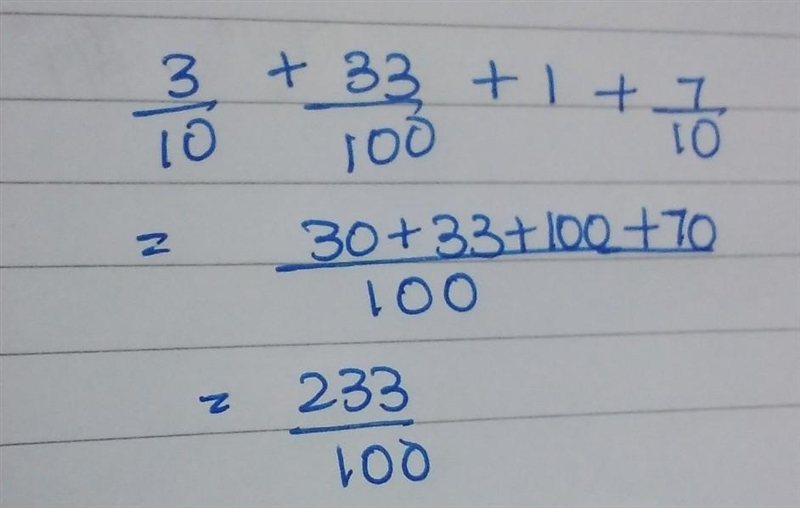 3/10 + 33/100 + 1 + 7/10
= 30+33+100+70/100
= 233/100